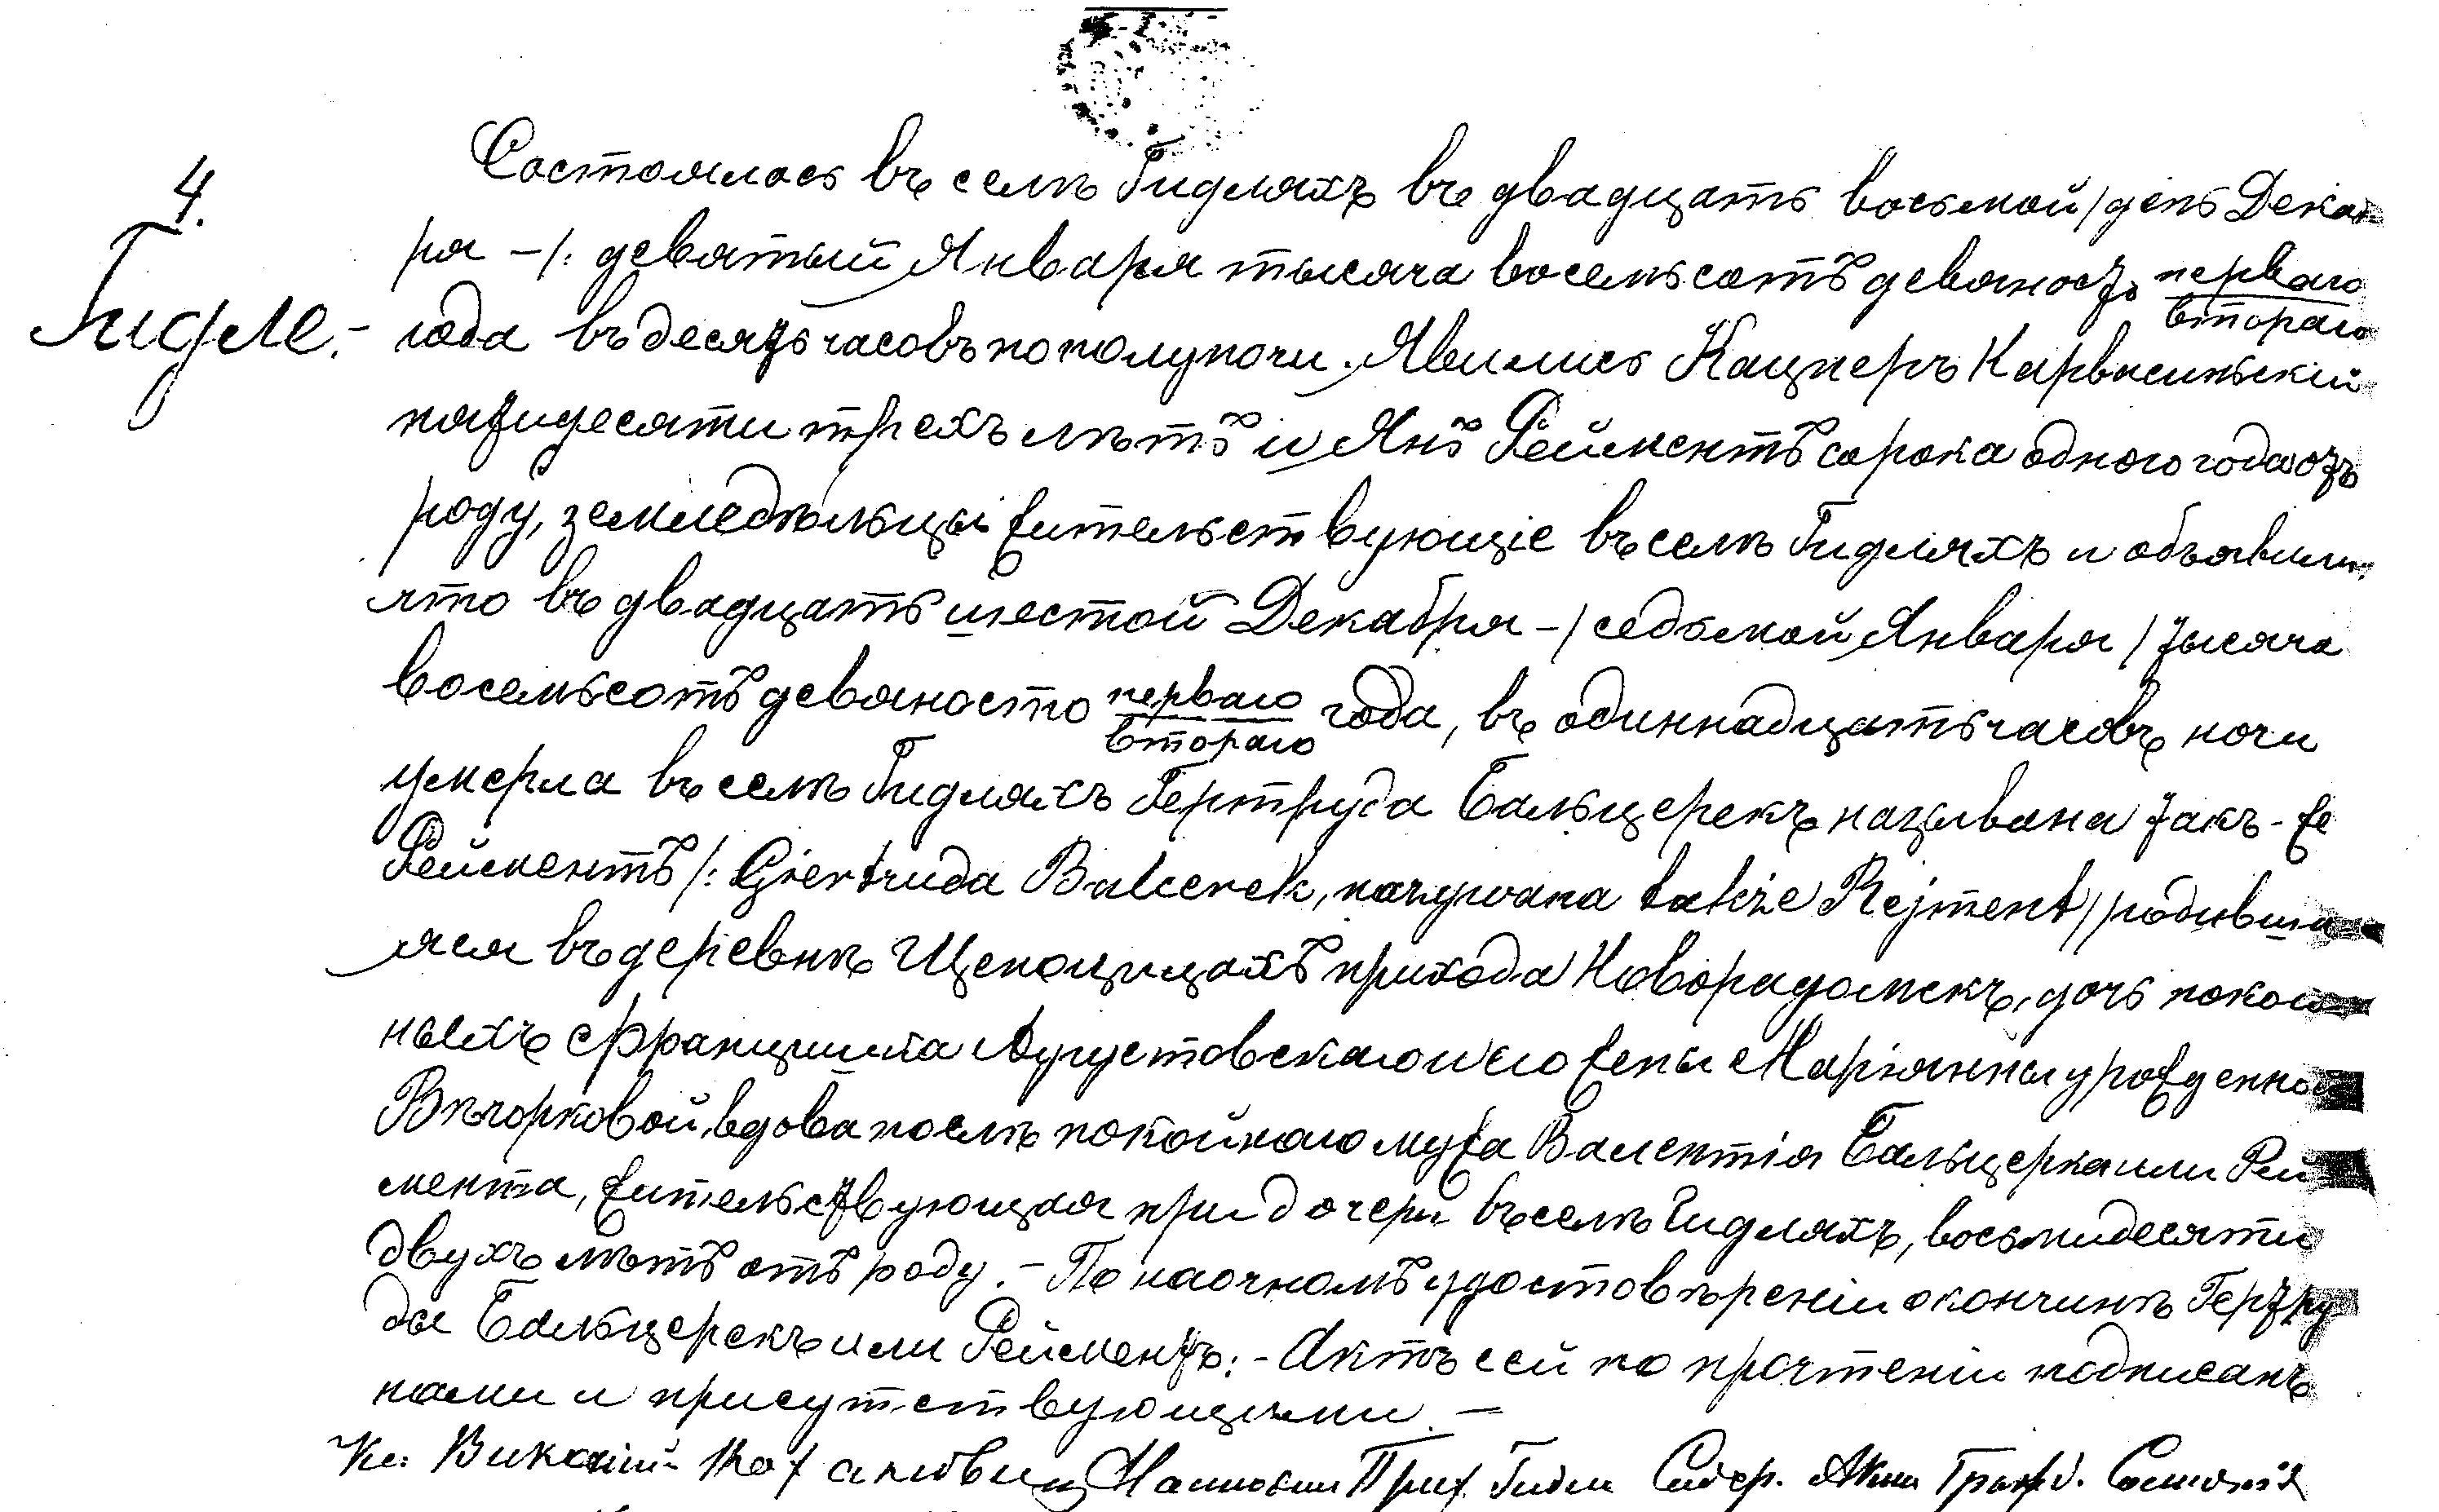 4.
Гидле.-
Состоялось въ селѣ Гидляхъ въ двадцать восьмой / день Декаб
ря -/: девятый Января тысяча восемьсотъ девяносто перваго
втораго
года въ десять часовъ по полуночи. Явились Кацперъ Карвасиньскій
пятидесяти трехъ лѣтъ и Янъ Рейментъ сорока одного года отъ
роду, земледѣльцы жительствующіе въ селѣ Гидляхъ и объявили
что въ двадцать шестой Декабря -/ седьмой Января / тысяча
восемьсотъ девяносто перваго года, въ одиннадцать часовъ ночи
втораго
умерла въ селѣ Гидляхъ Гертруда Бальцерекъ называна такъ-же
Рейментъ /: Giertruda Balcerek, nazywana także Rejment / родивша
яся въ деревнѣ Щепоцицахъ прихода Новорадомскъ, дочь покой
ныхъ Францишка Аугустовскаго и его жены Маріянны урожденной
Вѣчорковой, вдова послѣ покойнаго мужа Валентія Бальцерка или Рей
мента, жительствующая при дочери въ селѣ Гидляхъ, восьмидесяти
двухъ лѣтъ отъ роду. - По наочномъ удостовѣреніи о кончинѣ Гертру
ды Бальцерекъ или Рейментъ: - Актъ сей по прочтеніи подписанъ
нами и присутствующими. -
Кс: Викарій Прих. Гидле Содер. Акты Гражд. Состоянія